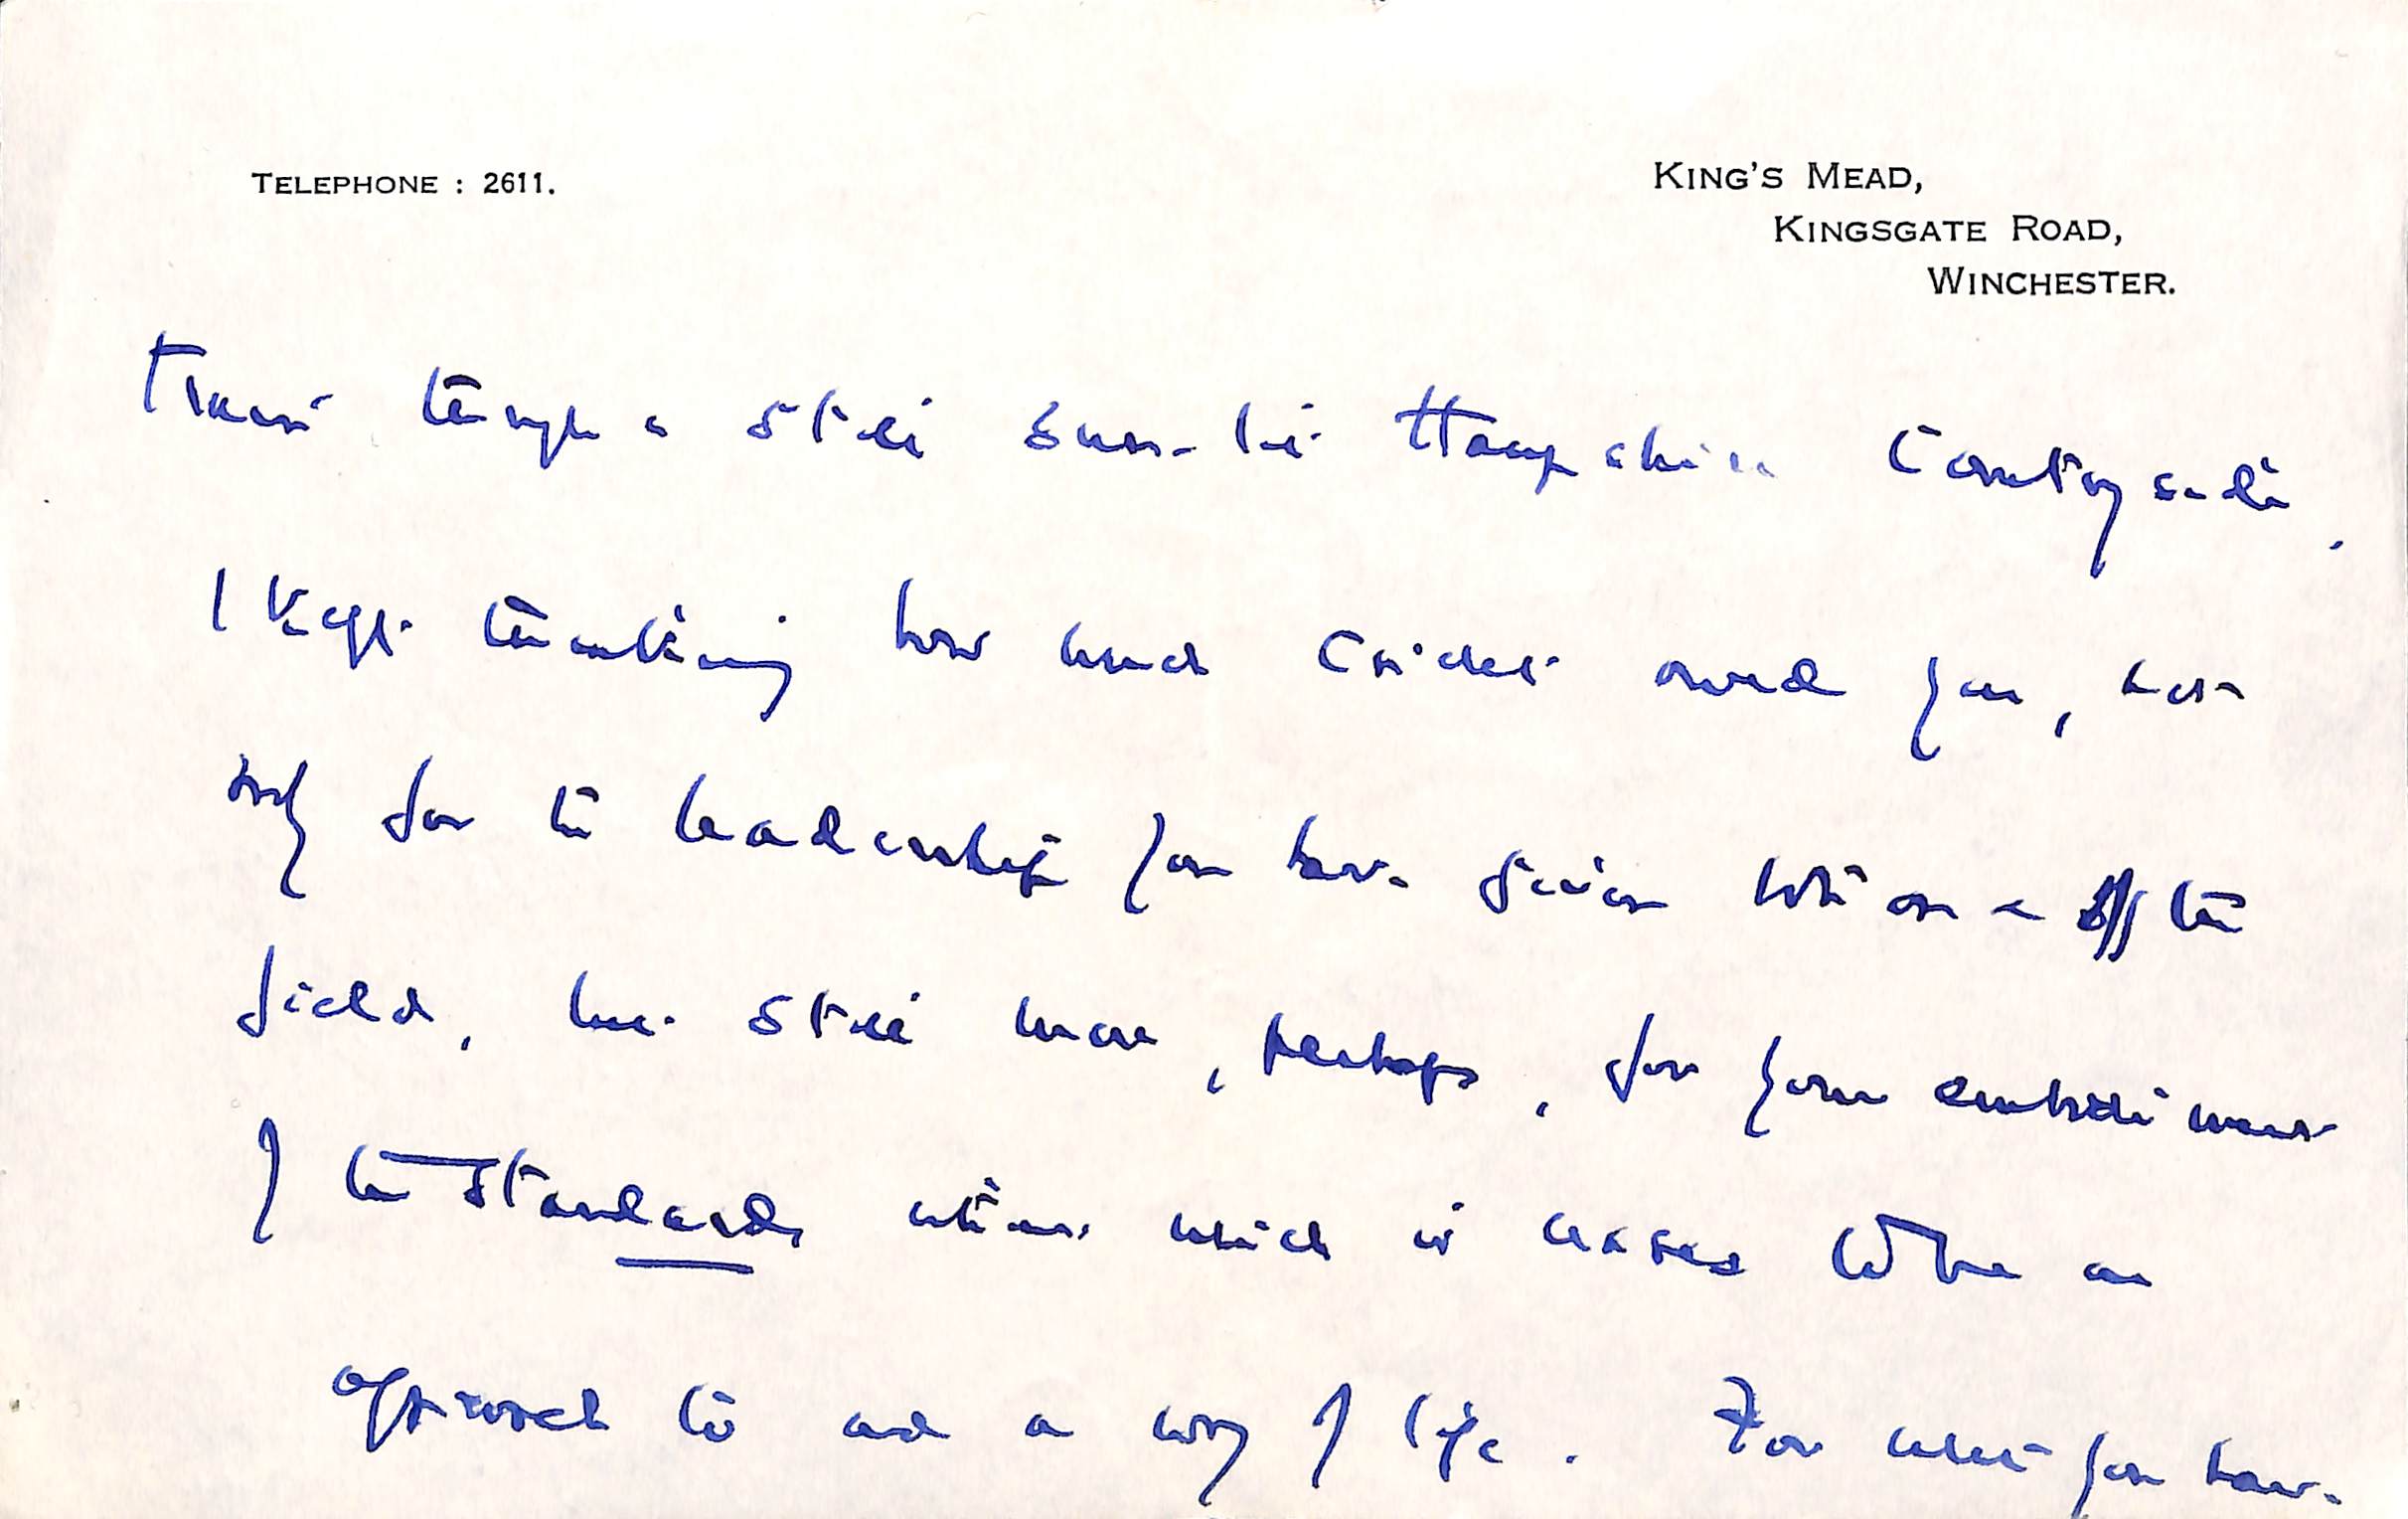 TELEPHONE : 2611.
KING'S MEAD,
KINGSGATE ROAD,
WINCHESTER.
through a still sun-lit Hampshire Countryside,
I kept thinking how much Cricket owed you, not
only for the leadership you have given both on & off the
field, but still more, perhaps, for your embodiment
of the standards without which it ceases to be an
approach to and a way of life. For what you have